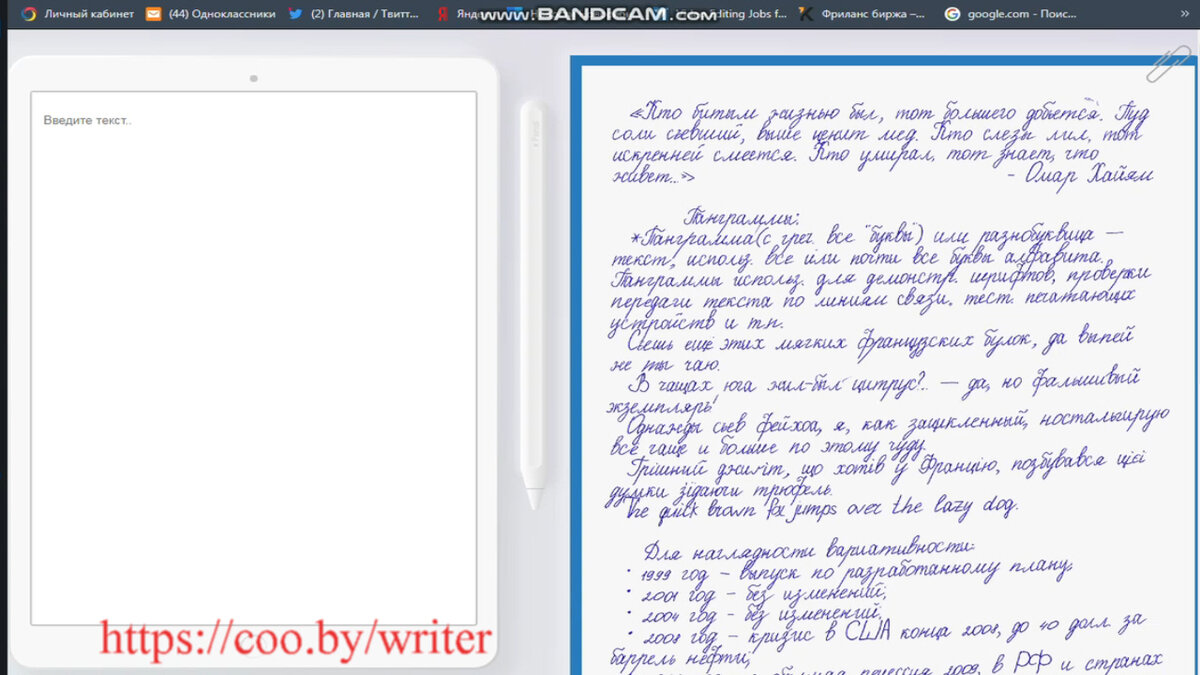 Личный кабинет
(44) Одноклассники
(2) Главная / Твитт...
www.BANDICAM.com
Editing Jobs f...
Фриланс биржа –...
google.com - Поис...
»
Введите текст..
«Кто битым жизнью был, тот большего добьется. Пуд
соли съевший, выше ценит мед. Кто слезы лил, тот
искренней смеется. Кто умирал, тот знает, что
живет...»
- Омар Хайям
Панграммы:
*Панграмма(с грег. все "буквы") или разнобуквица —
текст, использ. все или почти все буквы алфавита.
Панграммы использ. для демонстр. шрифтов, проверки
передачи текста по линиям связи, тест. печатающих
устройств и т.п.
Съешь ещё этих мягких французских булок, да выпей
же ты чаю.
В чащах юга жил-был цитрус?.. — да, но фальшивый
экземпляръ!
Однажды съев фейхоа, я, как зацикленный, ностальгирую
всё чаще и больше по этому чуду.
Грішний джигіт, що хотів у Францію, позбувався цієї
думки з'їдаючи трюфель.
The quick brown fox jumps over the lazy dog.
Для наглядности вариативности:
• 1999 год – выпуск по разработанному плану;
• 2001 год – без изменений;
• 2004 год – без изменений;
• 2008 год – кризис в США конца 2008, до 40 долл. за
баррель нефти;
рецессия 2009, в РФ и странах
https://coo.by/writer